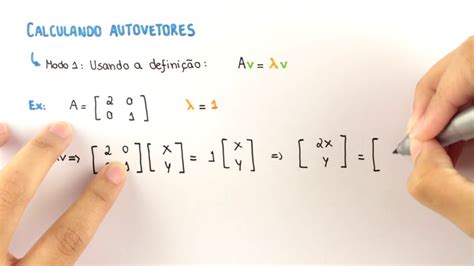 CALCULANDO AUTOVETORES
MODO 1: USANDO A DEFINIÇÃO: Av = λv
EX: A = [ 2 0 ; 0 1 ] λ = 1
v ⇒ [ 2 0 ; 1 ] [ x ; y ] = 1 [ x ; y ] ⇒ [ 2x ; y ] = [